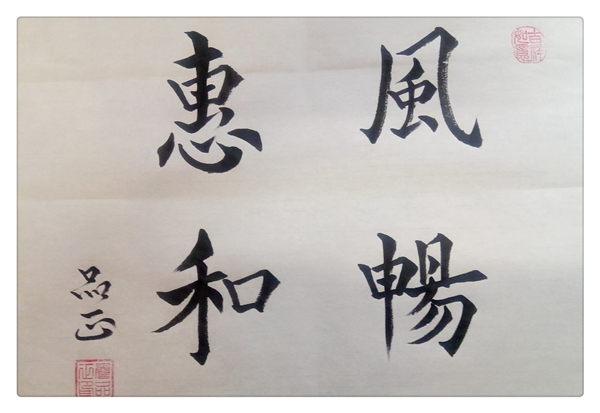 風暢
惠和
品正